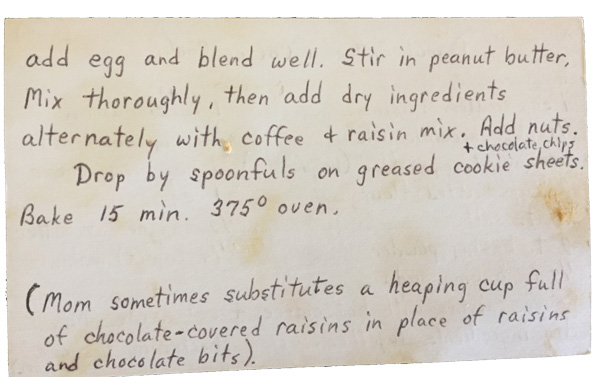 add egg and blend well. Stir in peanut butter.
Mix thoroughly, then add dry ingredients
alternately with coffee & raisin mix. Add nuts.
+ chocolate chips
Drop by spoonfuls on greased cookie sheets.
Bake 15 min. 375° oven.
(Mom sometimes substitutes a heaping cup full
of chocolate-covered raisins in place of raisins
and chocolate bits).